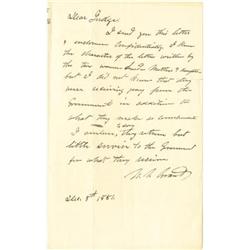 Dear Judge:
I send you this letter
& enclosure confidentially. I knew
the character of the letter written by
the two women
but I did not know that they
were receiving pay from the
Government in addition to
what they make as
I
they return but
little service to the Government
for what they receive
U. S. Grant
Dec. 8th 1881.